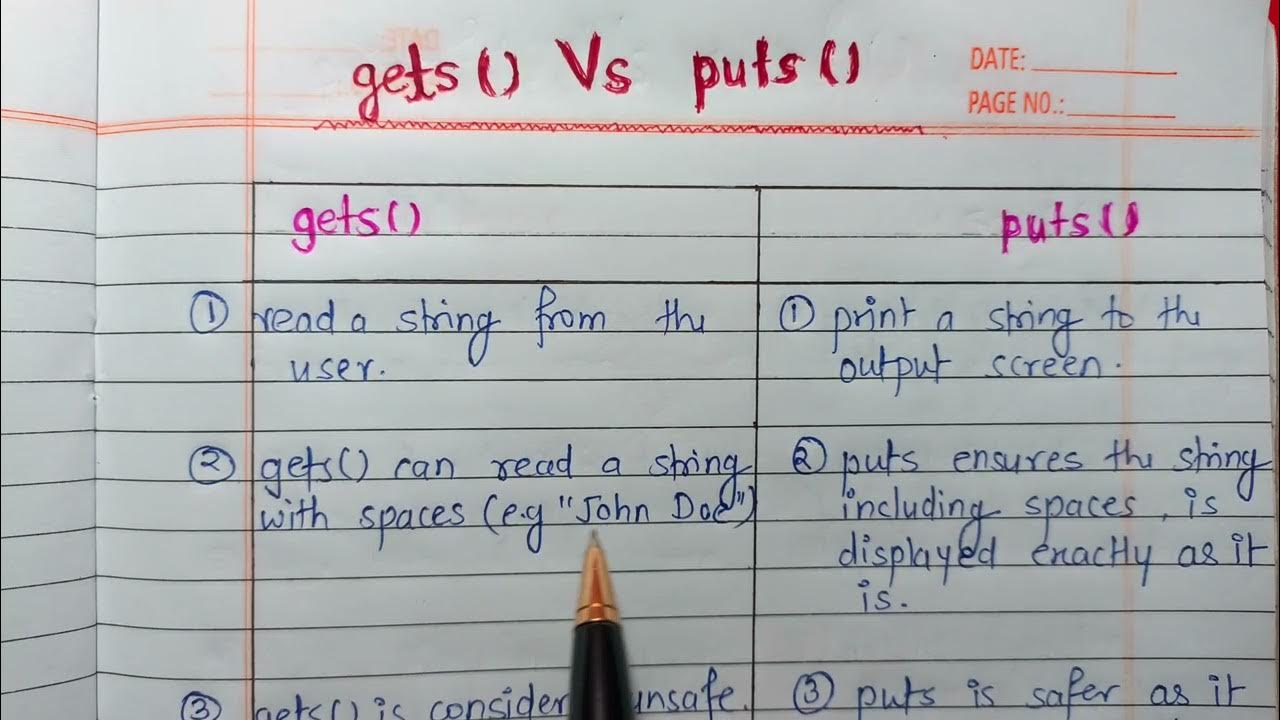 gets() Vs puts()
DATE:
PAGE NO.:
gets()
puts()
① read a string from the
user.
① print a string to the
output screen.
② gets() can read a string
with spaces (e.g "John Doe")
② puts ensures the string
including spaces, is
displayed exactly as it
is.
③ gets() is consider unsafe.
③ puts is safer as it